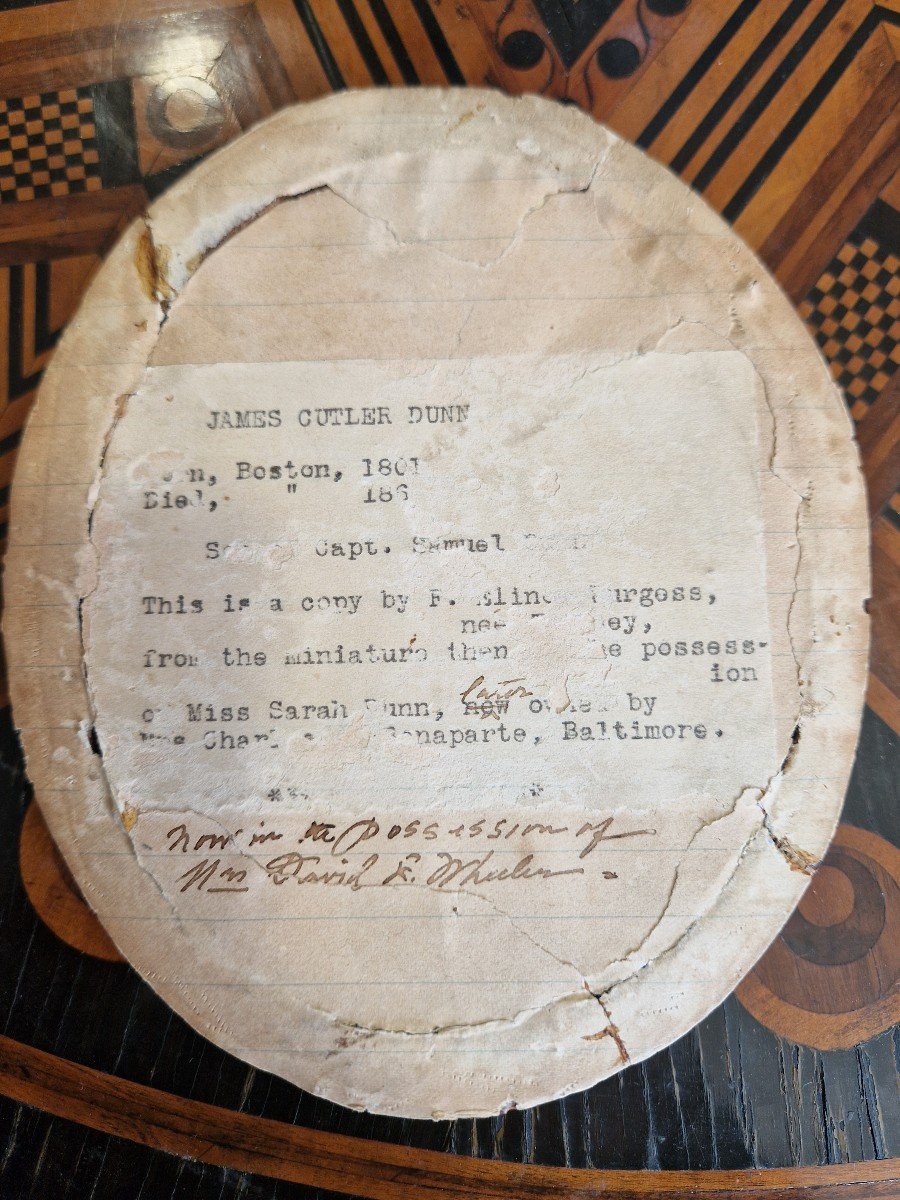 JAMES CUTLER DUNN
Boston, 1801
Died, " 186
Capt. Samuel
This is a copy by Burgess,
nee
from the miniature then possess-
ion
of Miss Sarah Dunn, later now owned by
Mrs Bonaparte, Baltimore.
Now in the possession of
Mrs David L. Wheeler